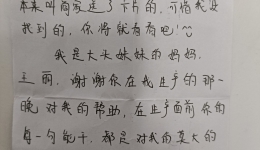 本来叫商家送了卡片的，可惜我没
找到的，你将就看看吧！^^
我是大头妹妹的妈妈，
王丽，谢谢你在我生产的那一
晚对我的帮助，在生产面前你的
每一句能干，都是对我的莫大的